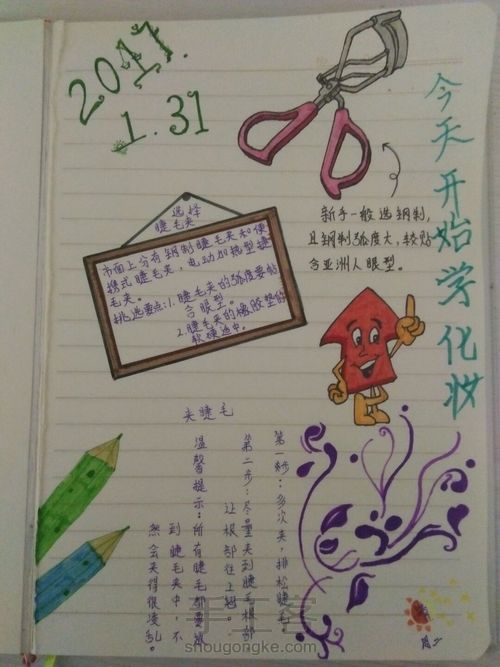 2017.
1.31
今天开始学化妆
新手一般选钢制,
且钢制弧度大,较贴
合亚洲人眼型。
选择
睫毛夹
市面上分有钢制睫毛夹和便
携式睫毛夹,电动加热型睫
毛夹。
挑选要点:1.睫毛夹的弧度要贴
合眼型。
2.睫毛夹的橡胶垫的
软硬适中。
夹睫毛
第一步:多次夹,排松睫毛
第二步:尽量夹到睫毛根部
让根部往上翘。
温馨提示:所有睫毛都要放
到睫毛夹中,不
然会夹得很凌乱。
手工客
shougongke.com